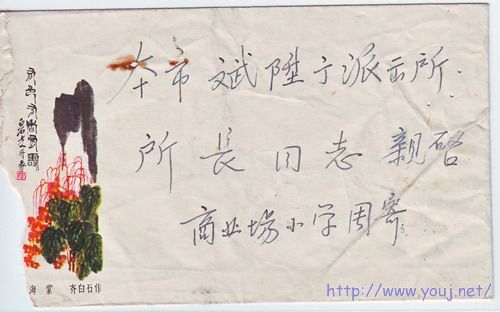 本市斌陞宁派出所
所長同志親启
商业場小学周寄
海棠 齐白石作
http://www.youj.net/